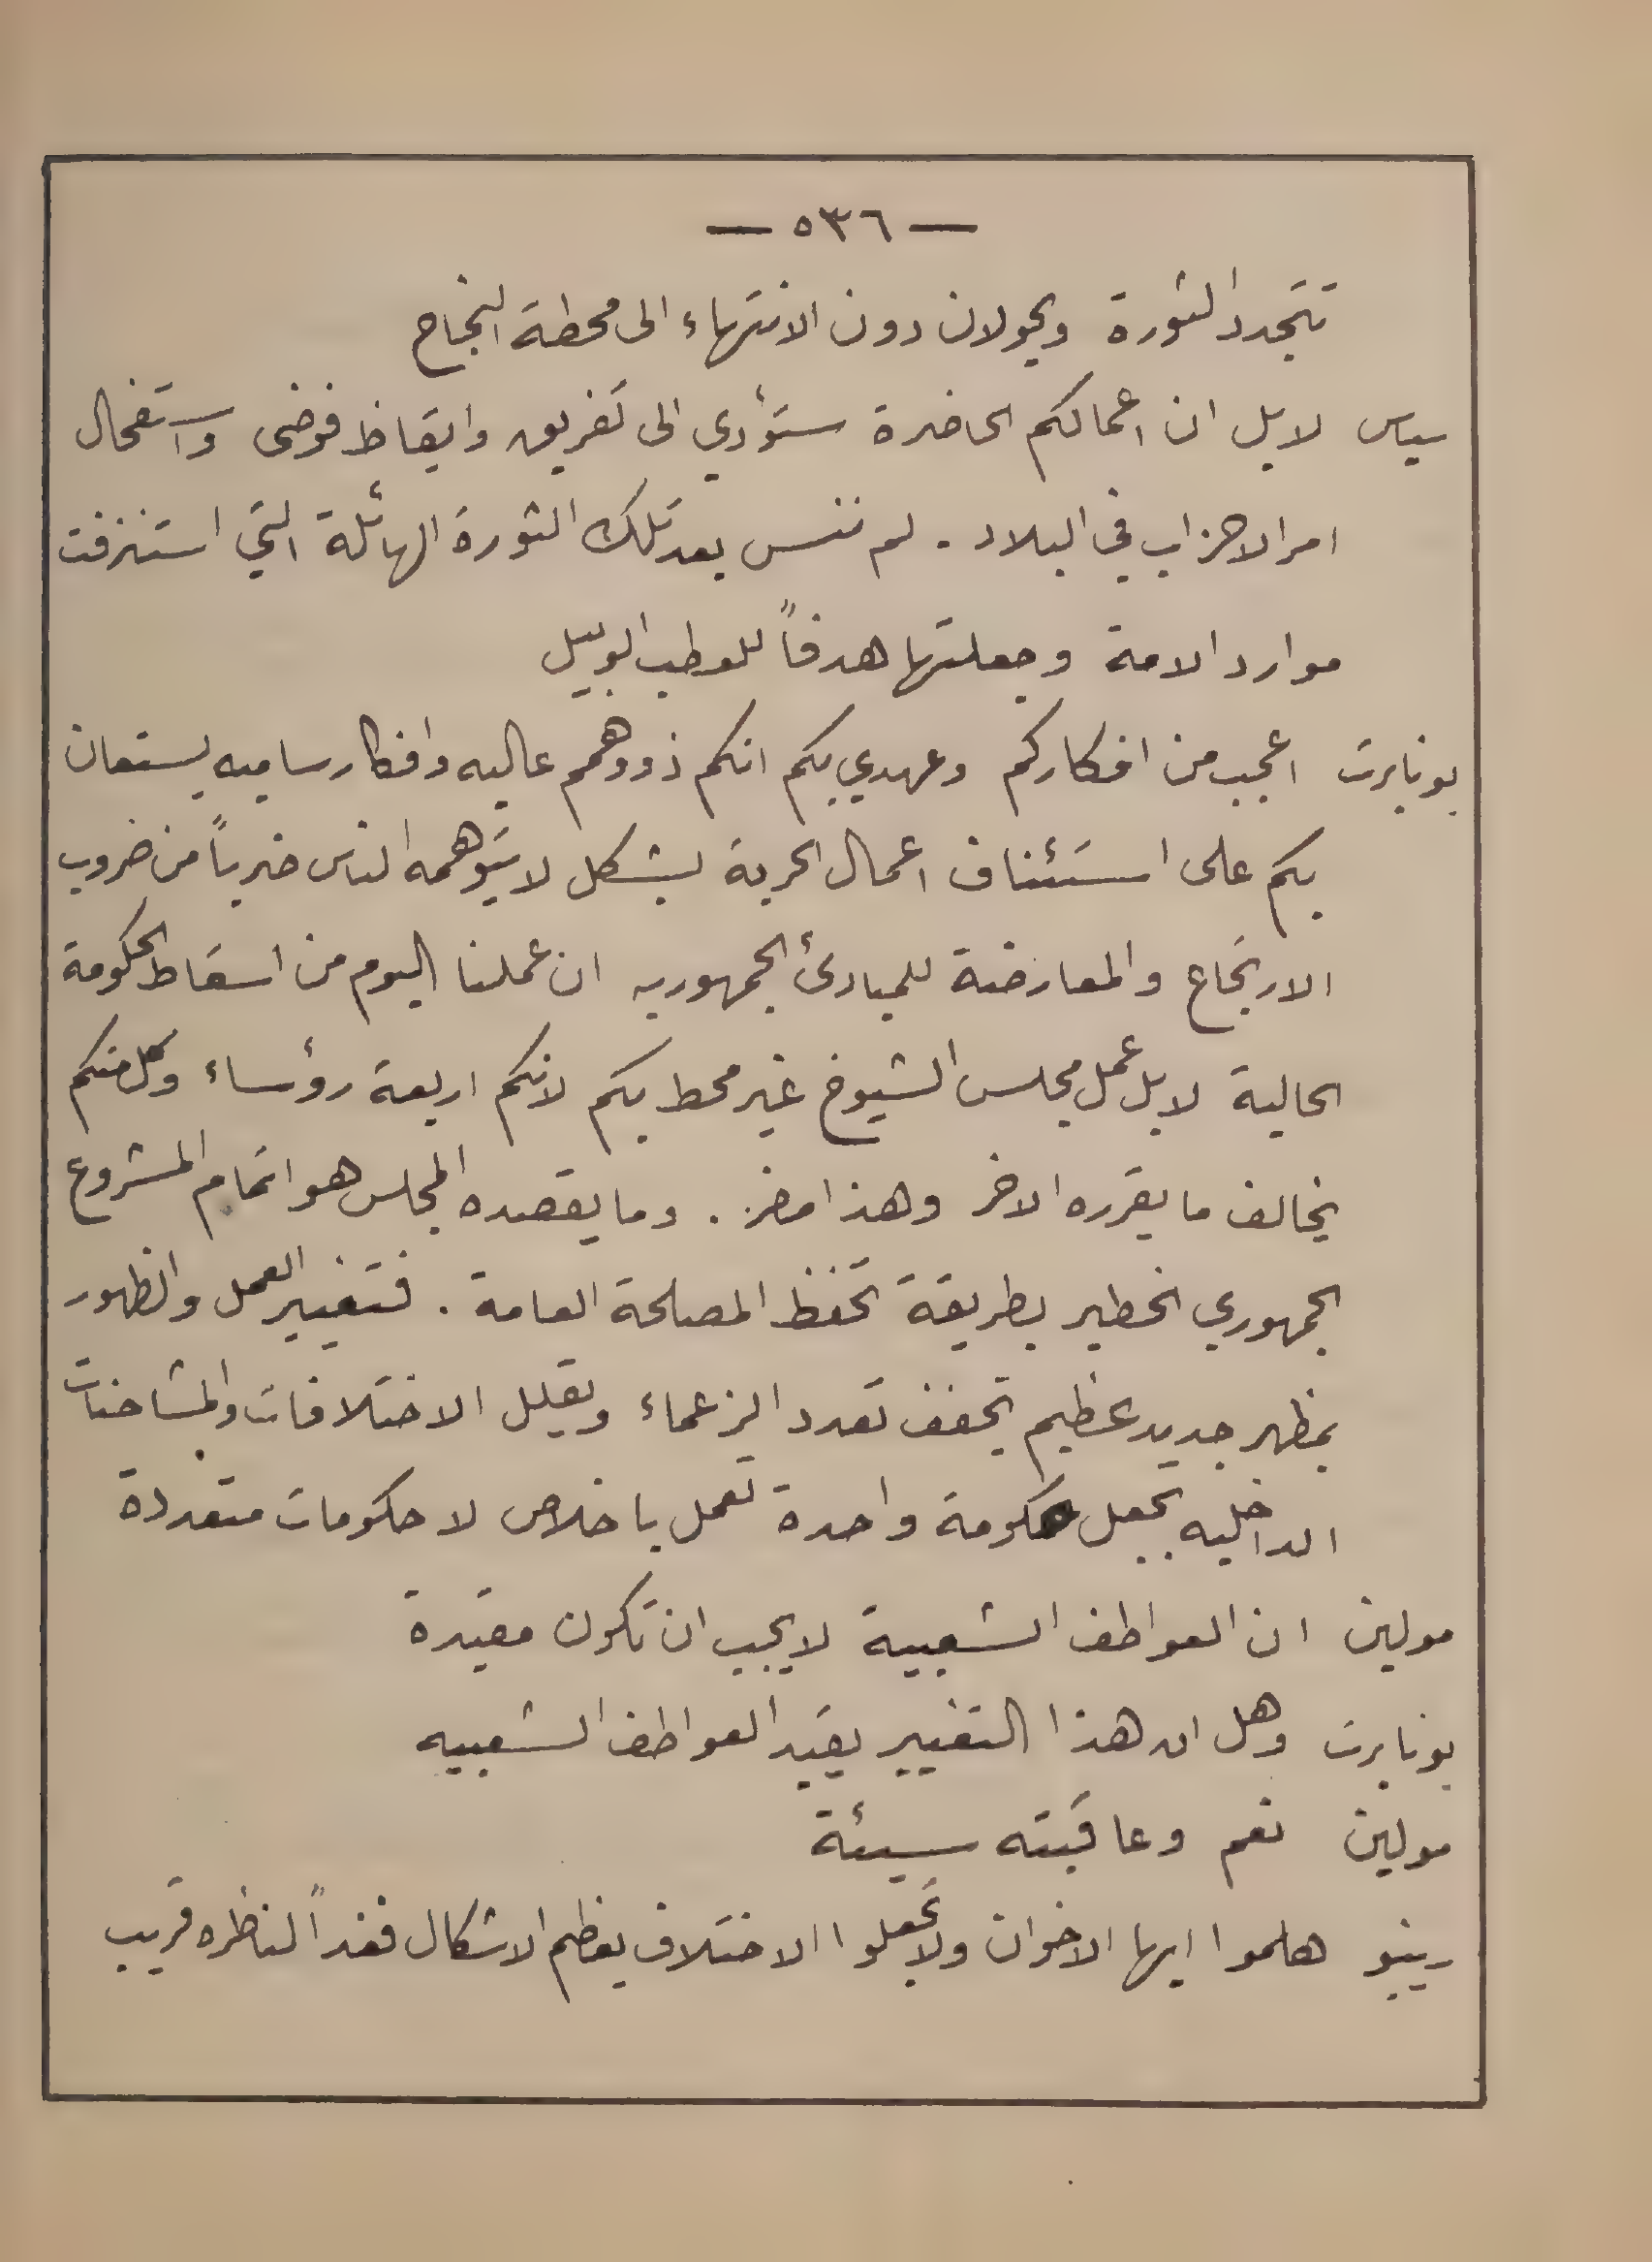 — ٥٣٦ —
تتجدد الثورة ويحولان دون الانتهاء الى محطة النجاح
سياس لا بل ان اعمالكم الحاضرة ستؤدي الى تفريق وايقاظ فوضى واستفحال
امر الاحزاب في البلاد . لم ننس بعد تلك الثورة الهائلة التي استنزفت
موارد الامة وجعلتها هدفاً للعطب الوبيل
بونابرت اعجب من افكاركم وعهدي بكم انكم ذوو همم عاليه وافكار ساميه يستعان
بكم على استئناف اعمال الحرية بشكل لا يتوهمه الناس ضرباً من ضروب
الارتجاع والمعارضة للمبادئ الجمهوريه ان عملنا اليوم من اسقاط الحكومة
الحالية لا بل عمل مجلس الشيوخ غير محط بكم لانكم اربعة رؤساء وكل منكم
يخالف ما يقرره الاخر وهذا مضر . وما يقصده المجلس هو اتمام المشروع
الجمهوري الخطير بطريقة تحفظ المصلحة العامة . فتغيير العمل والظهور
بمظهر جديد عظيم يخفف تعدد الزعماء ويقلل الاختلافات والمشاحنات
الداخليه بجعل حكومة واحدة تعمل باخلاص لا حكومات متعددة
مولين ان العواطف الشعبية لا يجب ان تكون مقيدة
بونابرت وهل ان هذا التغيير يقيد العواطف الشعبيه
مولين نعم وعاقبته سيئة
رينو هلموا ايها الاخوان ولا تجعلوا الاختلاف يعظم الاشكال فغداً لناظره قريب